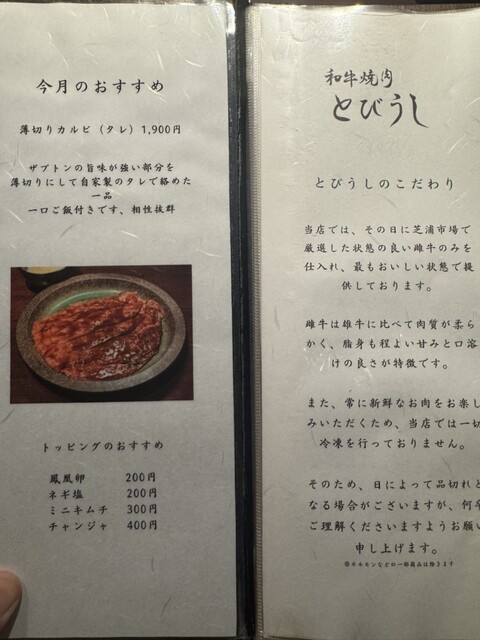 今月のおすすめ
薄切りカルビ（タレ）1,900円
ザブトンの旨味が強い部分を
薄切りにして自家製のタレで絡めた
一品
一口ご飯付きです、相性抜群
トッピングのおすすめ
鳳凰卵 200円
ネギ塩 200円
ミニキムチ 300円
チャンジャ 400円
和牛焼肉
とびうし
とびうしのこだわり
当店では、その日に芝浦市場で
厳選した状態の良い雌牛のみを
仕入れ、最もおいしい状態で提
供しております。
雌牛は雄牛に比べて肉質が柔ら
かく、脂身も程よい甘みと口溶
けの良さが特徴です。
また、常に新鮮なお肉をお楽し
みいただくため、当店では一切
冷凍を行っておりません。
そのため、日によって品切れと
なる場合がございますが、何卒
ご理解くださいますようお願い
申し上げます。
※ホルモンなどの一部商品は除きます